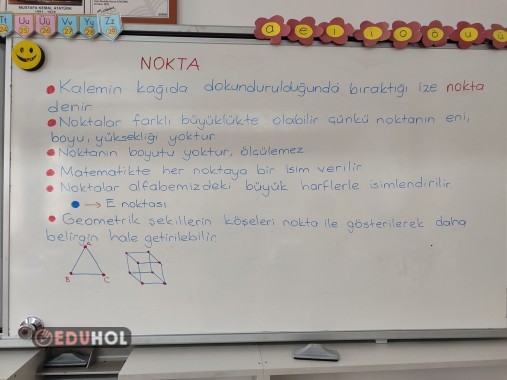 MUSTAFA KEMAL ATATÜRK
1881 - 1938
Tt Uu Üü Vv Yy Zz
24 25 26 27 28 29
a e ı i o ö u ü
NOKTA
Kalemin kağıda dokundurulduğunda bıraktığı ize nokta
denir
Noktalar farklı büyüklükte olabilir çünkü noktanın eni,
boyu, yüksekliği yoktur
Noktanın boyutu yoktur, ölçülemez
Matematikte her noktaya bir isim verilir
Noktalar alfabemizdeki büyük harflerle isimlendirilir
→ E noktası
Geometrik şekillerin köşeleri nokta ile gösterilerek daha
belirgin hale getirilebilir
A
B C
EDUHOL